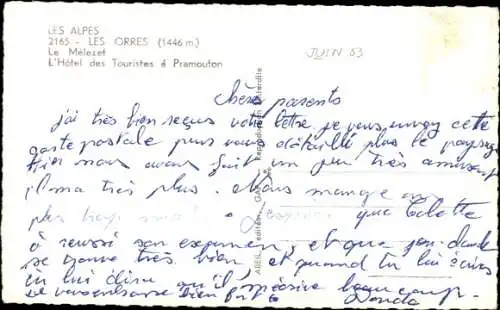 LES ALPES
2165 - LES ORRES (1446 m)
Le Mélezet
L'Hôtel des Touristes à Pramouton
JUIN 53
Chers parents
j'ai très bien reçus votre lettre je vous envoy cette
carte postale pour vous détaillé plus le paysage
hier nous avons fait un peu très amusant
il m'a très plus. Nous mange
plus trop que Colette
à reussi son examen, et que jean-claude
se trouve très bien, et quand tu lui écrira
tu lui dira qu'il beaucoup
bien fort
ABEIL, éditeur, Gap Reproduction interdite